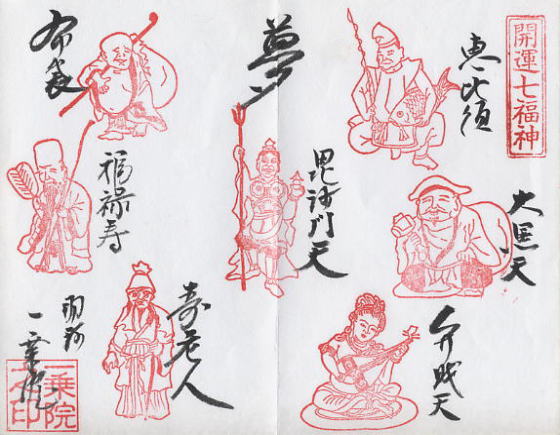 開運七福神
恵比須
大黒天
弁財天
夢
毘沙門天
布袋
福禄寿
寿老人
一乗院